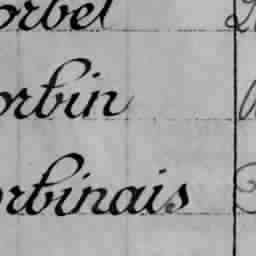 orbel
orbin
orbinais